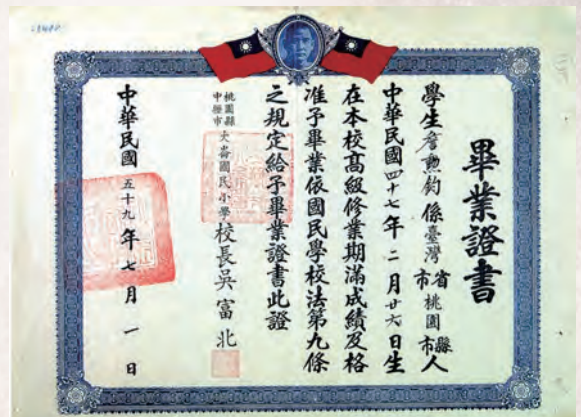 畢業證書
學生詹勲鈞係臺灣省市桃園縣市人
中華民國四十七年二月廿六日生
在本校高級修業期滿成績及格
准予畢業依國民學校法第九條
之規定給予畢業證書此證
桃園縣中壢市大崙國民小學校長吳富北
中華民國五十九年七月一日